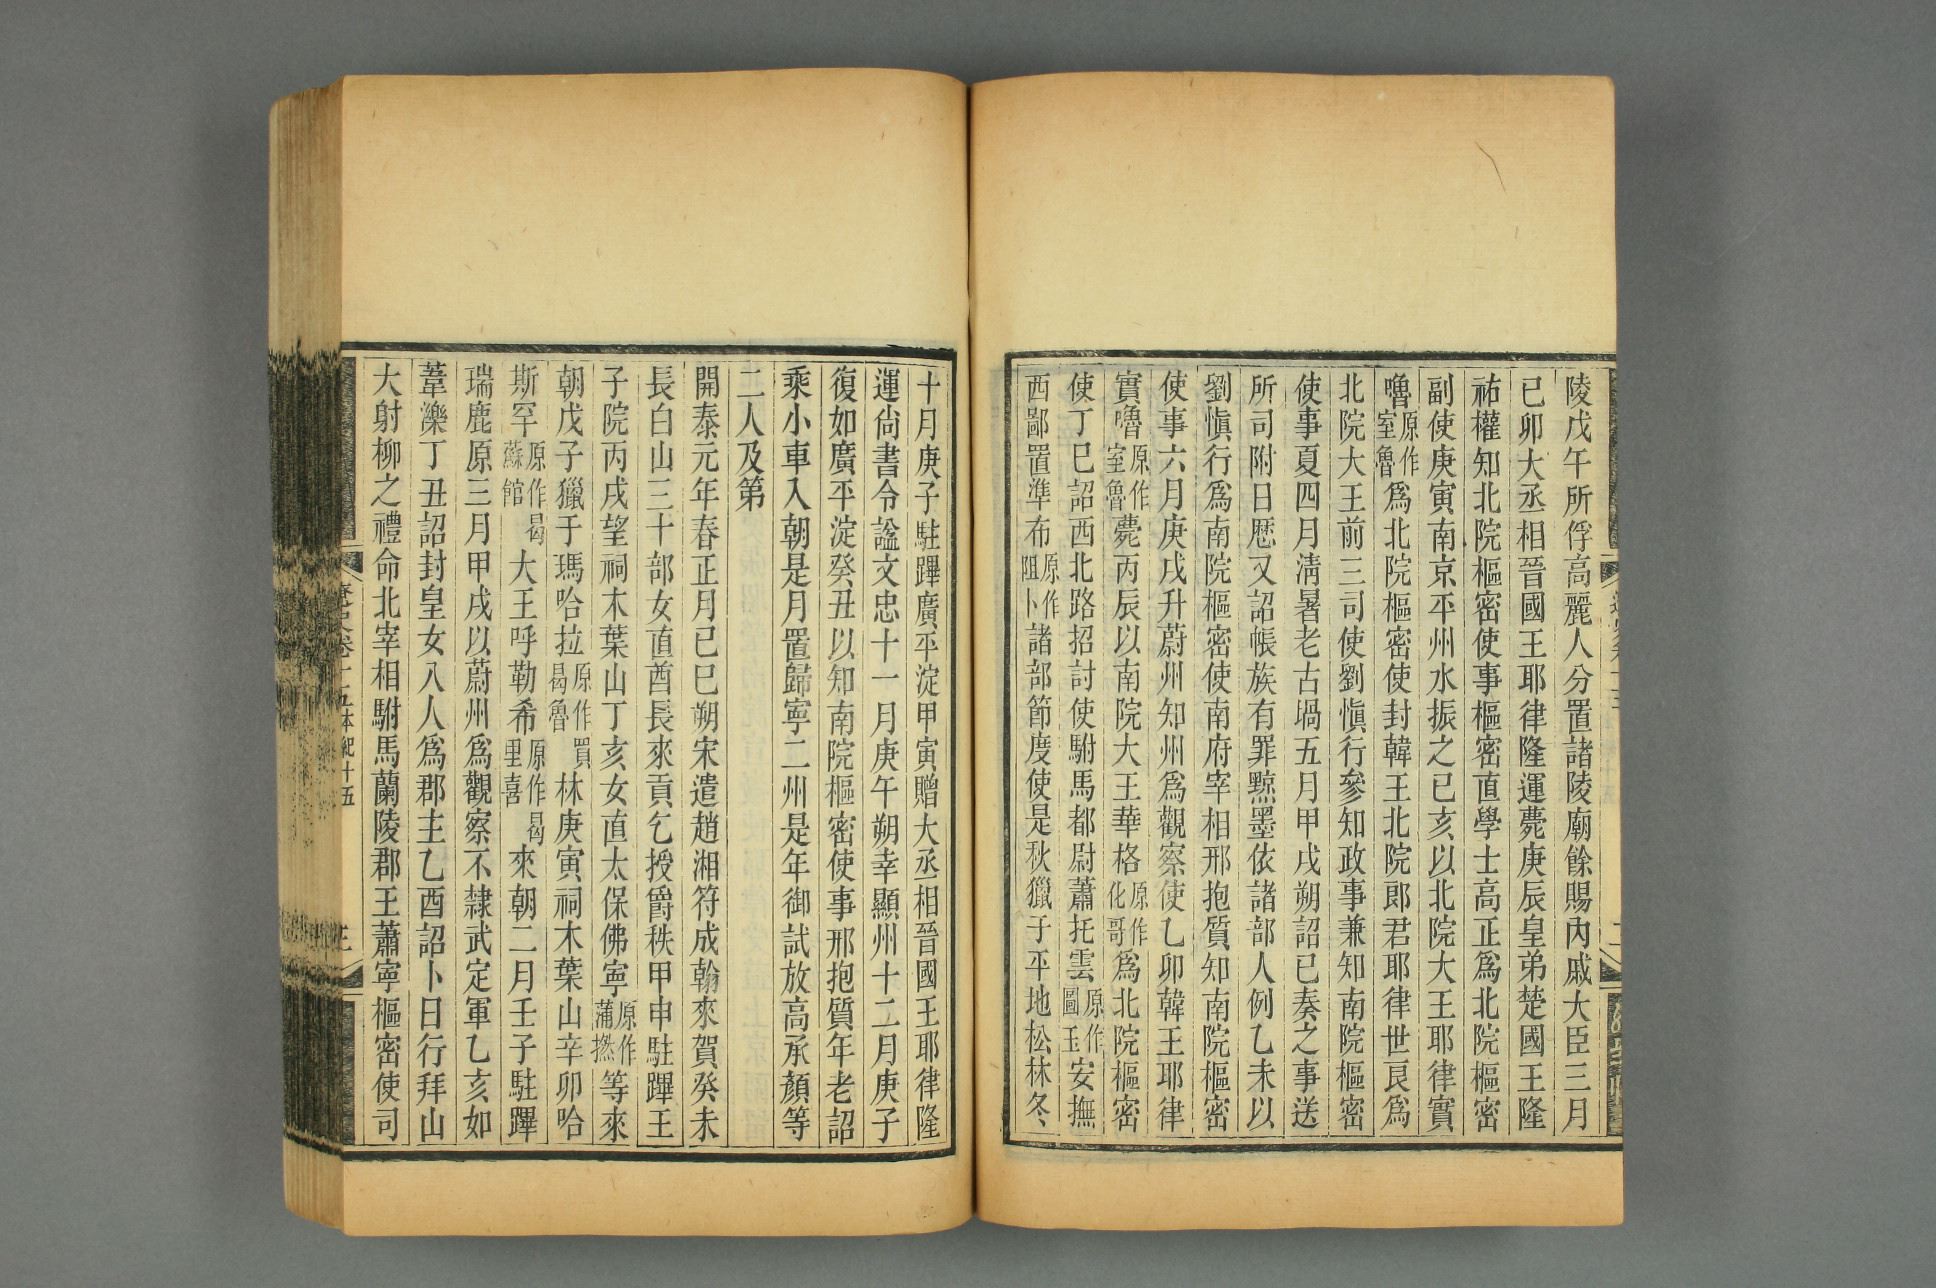 陵戊午所俘高麗人分置諸陵廟餘賜內戚大臣三月
己卯大丞相晉國王耶律隆運薨庚辰皇弟楚國王隆
祐權知北院樞密使事樞密直學士高正爲北院樞密
副使庚寅南京平州水振之己亥以北院大王耶律實
嚕原作室魯爲北院樞密使封韓王北院郎君耶律世良爲
北院大王前三司使劉愼行參知政事兼知南院樞密
使事夏四月淸暑老古堝五月甲戌朔詔已奏之事送
所司附日厯又詔帳族有罪黥墨依諸部人例乙未以
劉愼行爲南院樞密使南府宰相邢抱質知南院樞密
使事六月庚戌升蔚州知州爲觀察使乙卯韓王耶律
實嚕原作室魯薨丙辰以南院大王華格原作化哥爲北院樞密
使丁巳詔西北路招討使駙馬都尉蕭托雲原作圖玉安撫
西鄙置準布原作阻卜諸部節度使是秋獵于平地松林冬
十月庚子駐蹕廣平淀甲寅贈大丞相晉國王耶律隆
運尙書令諡文忠十一月庚午朔幸顯州十二月庚子
復如廣平淀癸丑以知南院樞密使事邢抱質年老詔
乘小車入朝是月置歸寧二州是年御試放高承顏等
二人及第
開泰元年春正月己巳朔宋遣趙湘符成翰來賀癸未
長白山三十部女直酋長來貢乞授爵秩甲申駐蹕王
子院丙戌望祠木葉山丁亥女直太保佛寧原作蒲撚等來
朝戊子獵于瑪哈拉原作買曷魯林庚寅祠木葉山辛卯哈
斯罕原作曷蘇館大王呼勒希原作曷里喜來朝二月壬子駐蹕
瑞鹿原三月甲戌以蔚州爲觀察不隸武定軍乙亥如
葦濼丁丑詔封皇女八人爲郡主乙酉詔卜日行拜山
大射柳之禮命北宰相駙馬蘭陵郡王蕭寧樞密使司
遼史卷十五本紀十五